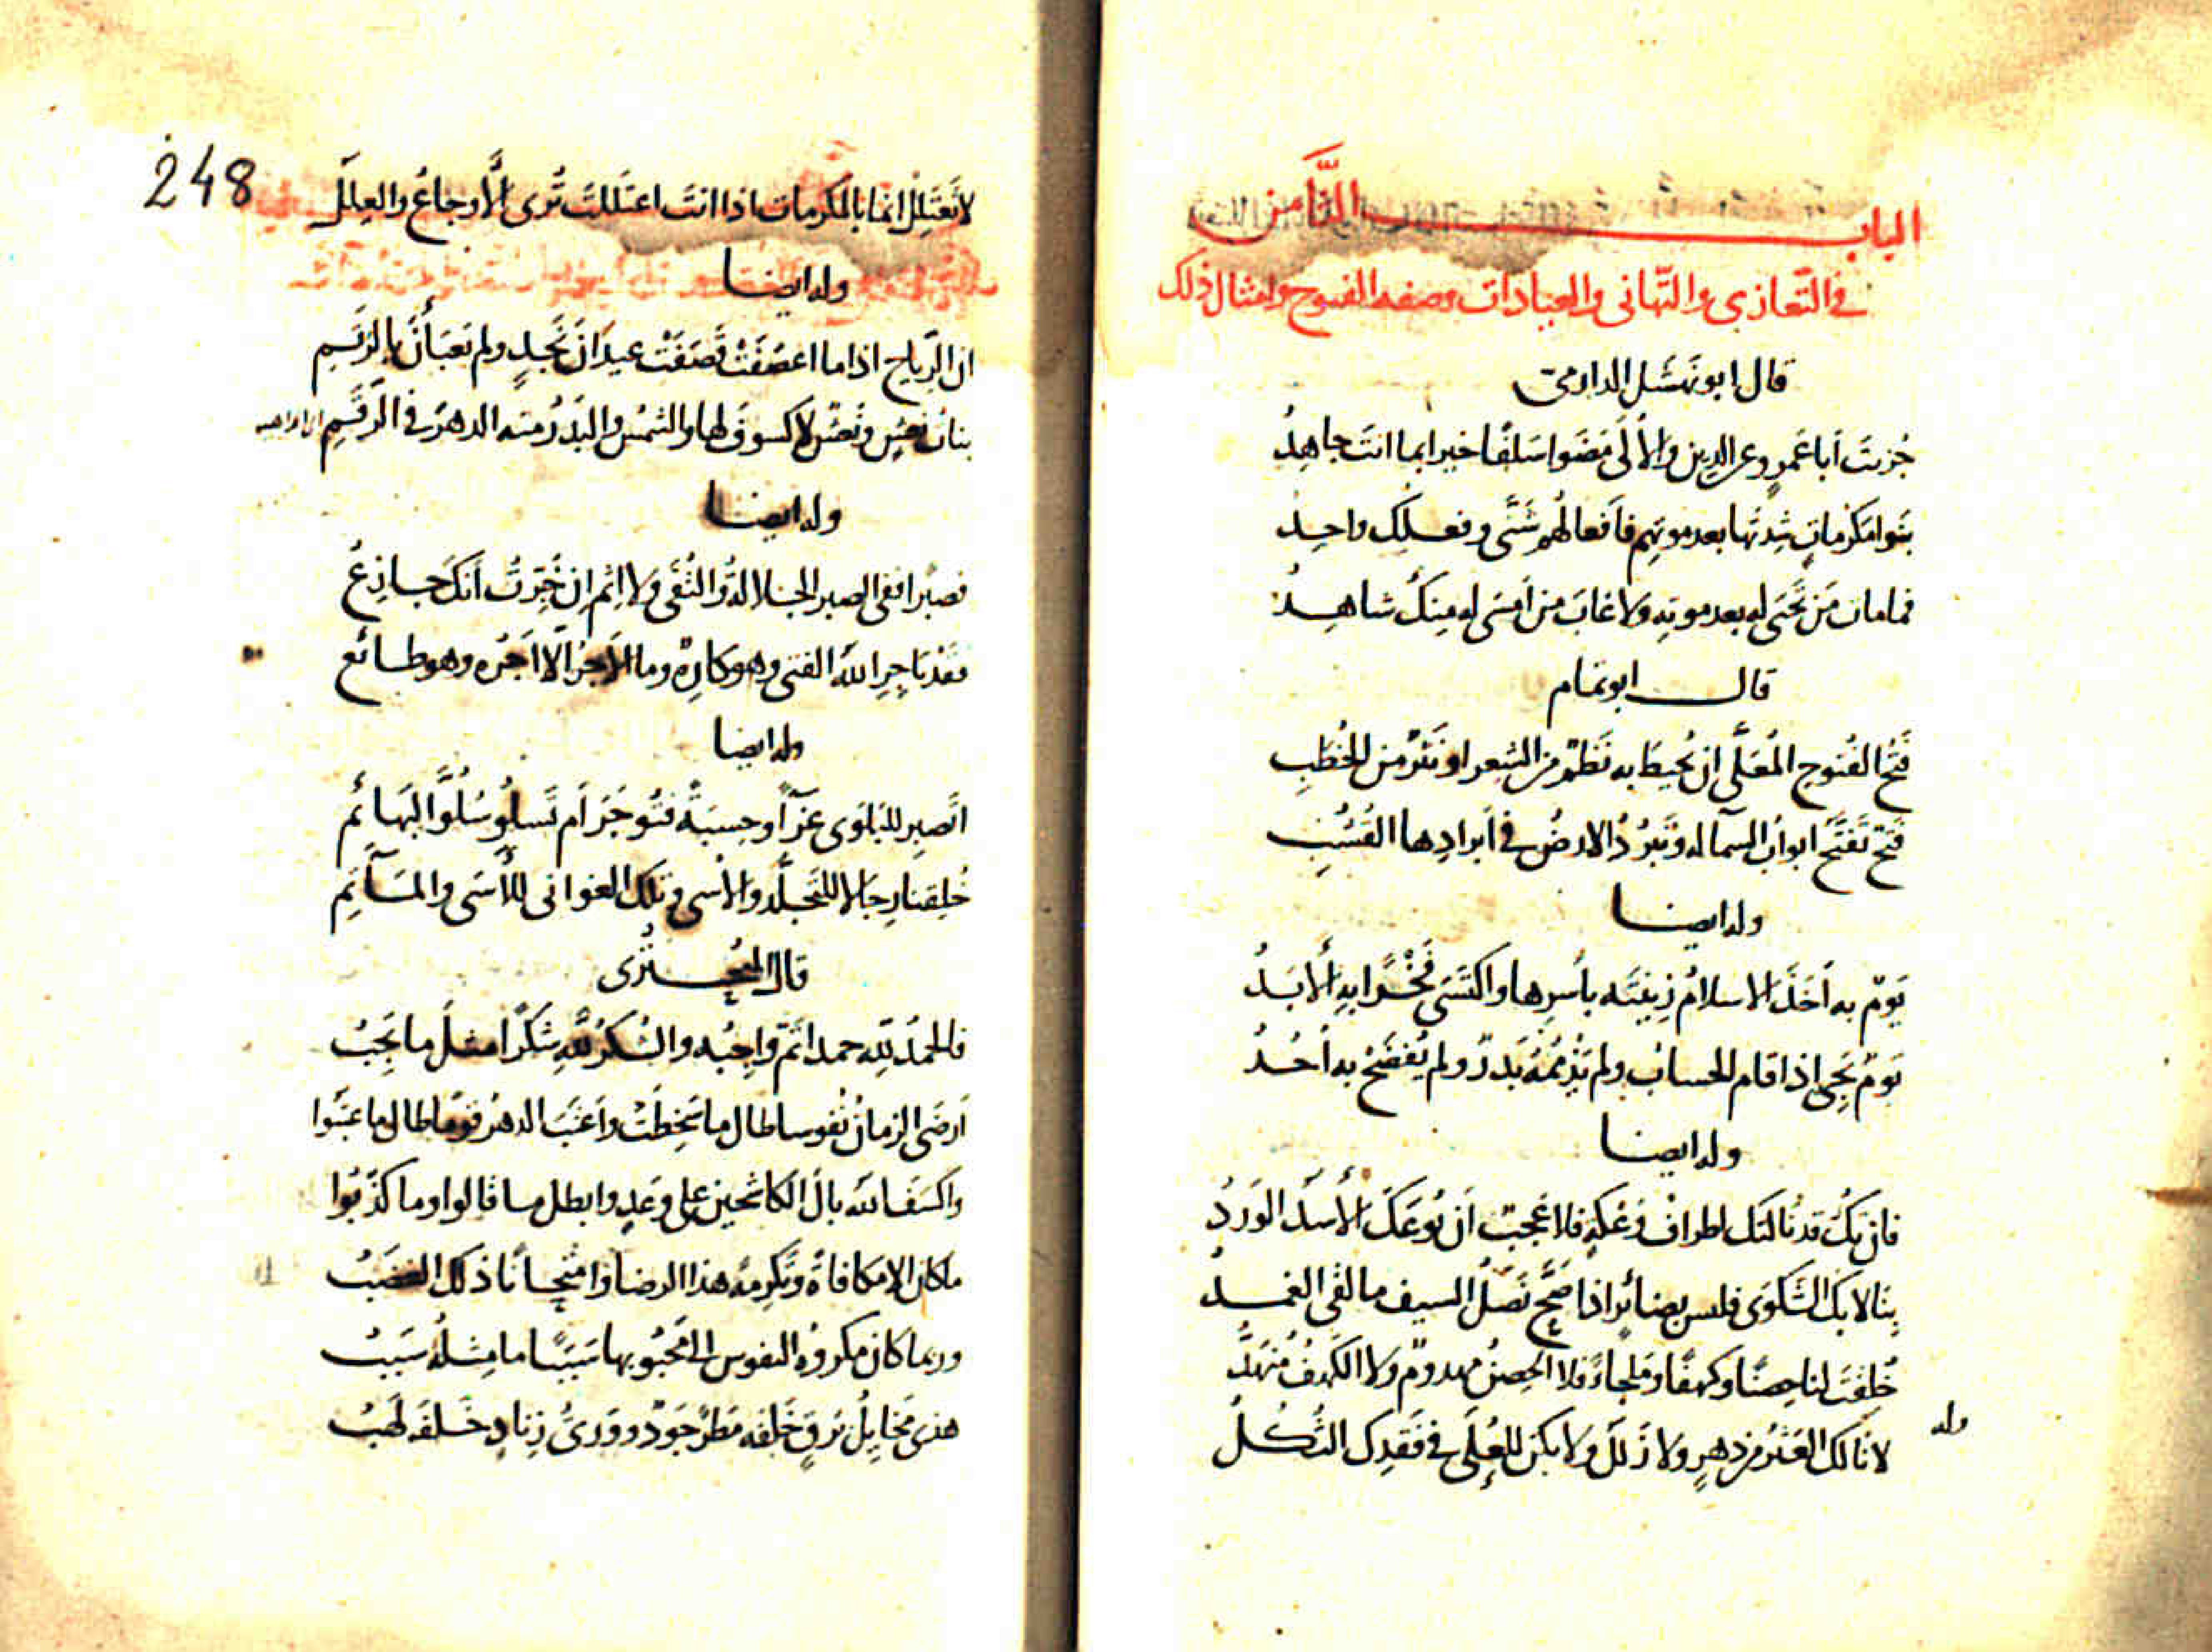 الباب الثَّامن
في التّعازي والتّهاني والعيادات وصفة الفتوح وامثال ذلك
قال ابو نهشل الدارمي
جُزيتَ أبا عَمرٍو عن الدين والأُلَى مَضَوا سَلَفًا خيرا بما انتَ جاهِدُ
بنوا مَكرماتٍ شِدتَها بعد موتهم فأفعالُهم شَتَّى وفعلك واحِد
فما مات مَن تَحيَى له بعد موته ولا غابَ من أمسَى له مِنكَ شاهِدُ
قال ابو تمام
فَتحُ الفُتوحِ المُعَلَّى ان يُحيطَ به نَظمٌ من الشعر او نَثرٌ من الخُطَبِ
فَتحٌ تَفَتَّحُ ابوابُ السماء له وتَبرُزُ الارضُ في أبرادِها القُشُبِ
وله ايضا
يَومٌ به أخَذَ الاسلامُ زِينَتَه بأسرِها واكتَسَى فَخْرًا به الأبَدُ
يَومٌ يَجيء اذا قام الحسابُ ولم يَذمُمْهُ بَدرٌ ولم يُفضَحْ به أحُدُ
وله ايضا
فان يَكُ قد نالتك اطرافُ وَعكةٍ فلا عَجبٌ أن يُوعَكَ الأسدُ الوَردُ
بنا لا بك الشكوَى فليس بضائرٍ اذا صَحَّ نَصلُ السيف ما لقي الغمدُ
خُلِقتَ لنا حِصنًا وكهفًا وملجاءً فلا الحِصنُ مهدومٌ ولا الكهفُ مُنهَدُّ
وله
لا نالك العَثرُ من دهرٍ ولا زَلَلُ ولا يكن للعُلَى في فَقدِك الثُّكلُ
248
لا تَعتَلِلْ انما بالمكرمات اذا انتَ اعتَلَلتَ تُرى الأوجاعُ والعِلَلُ
وله ايضا
ان الرّياح اذا ما اعصَفَتْ قَصَفَتْ عيدانَ نَجدٍ ولم يَعبَأنَ بالرَّتَمِ
بناتُ نعشٍ ونَعشٌ لا كسوفَ لها والشمسُ والبَدرُ منه الدهرَ في الرَّقَمِ
وله ايضا
فصبرا ففي الصبر الجلالةُ والتُّقَى ولا اِثمَ ان خُبّرتُ أنكَ جازعُ
فقد يَاجِرِ اللهُ الفتى وهو كارِهٌ وما الأجرُ الّا اَجرُه وهو طائع
وله ايضا
اتَصبِر للبَلوَى عَزآ وحِسبَةً فتُوجَرَ اَم تَسلُو سُلُوَّ البَهائِم
خُلِقنا رجالا للتجلُّد والأسى وتلك الغوانى للأسَى والمَآتِمِ
قال البُحتُرى
فالحمد لله حمدا تَمَّ واجِبُه والشكرُ للهِ شكرًا مثلَ ما يَجِبُ
أرضَى الزمانُ نُفوسا طال ما سَخِطَتْ واَعتَبَ الدهرُ قومًا طال ما عَتَبوا
واكسَفَ اللهُ بالَ الكاشحين على وَعدٍ وابطل ما قالوا وما كذَّبوا
ما كان الا مكافاةً وتَكرِمةً هذا الرضا وامتحانا ذلك الغضَبُ
وربما كان مكروهُ النفوس الى مَحبُوبها سَبَبًا ما مِثلُه سَبَبُ
هذى مَخايِلُ بَرقٍ خَلفَه مَطَرٌ جَودٌ ووَرىُ زِنادٍ خَلفَه لَهَبُ